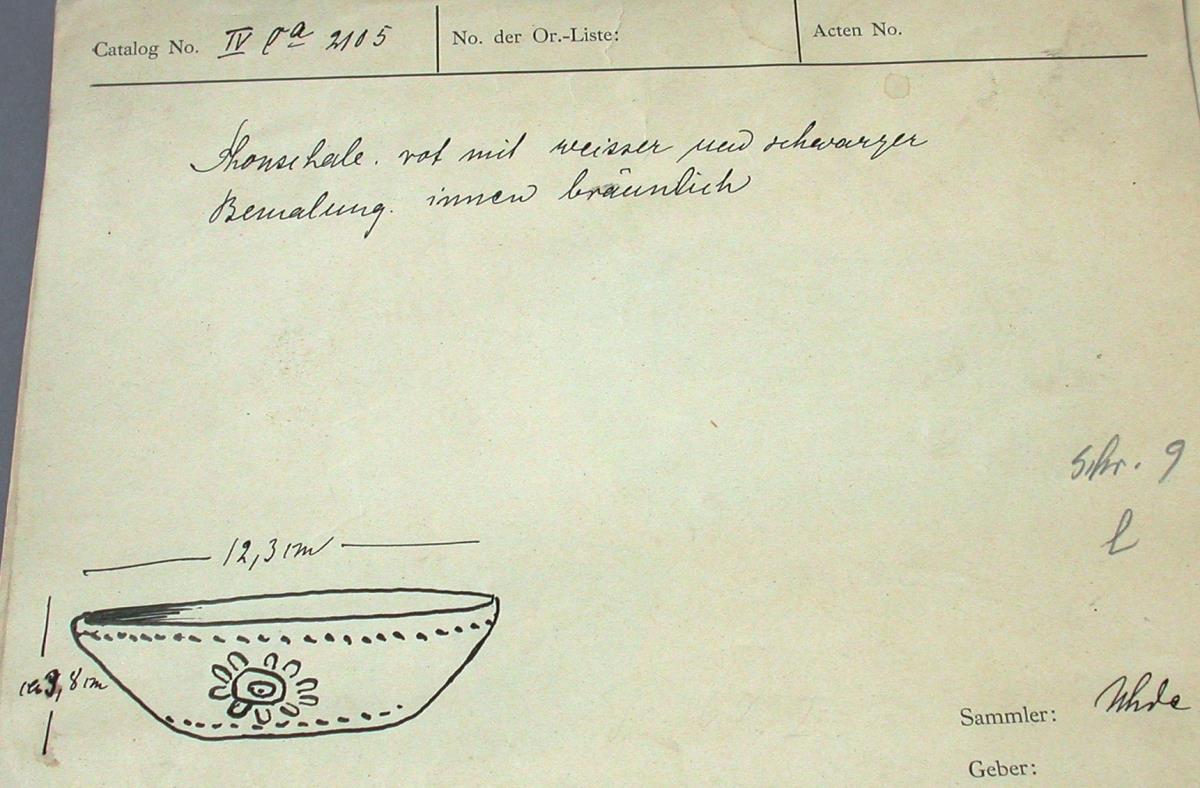 Catalog No. IV Ca 2105
No. der Or.-Liste:
Acten No.
Thonschale. rot mit weisser und schwarzer
Bemalung. innen bräunlich
Schr. 9
l
12,3 cm
3,8 cm
Sammler: Uhde
Geber: